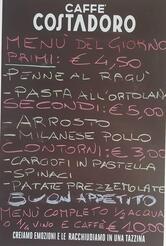 CAFFÈ
COSTADORO
MENÙ DEL GIORNO
PRIMI: € 4,50
-PENNE AL RAGÙ
-PASTA ALL'ORTOLANA
SECONDI: € 5,00
-ARROSTO
-MILANESE POLLO
CONTORNI: € 3,00
-CARCIOFI IN PASTELLA
-SPINACI
-PATATE PREZZEMOLATE
BUON APPETITO
MENÙ COMPLETO ½ ACQUA
O ¼ VINO E CAFFÈ € 10,00
CREIAMO EMOZIONI E LE RACCHIUDIAMO IN UNA TAZZINA